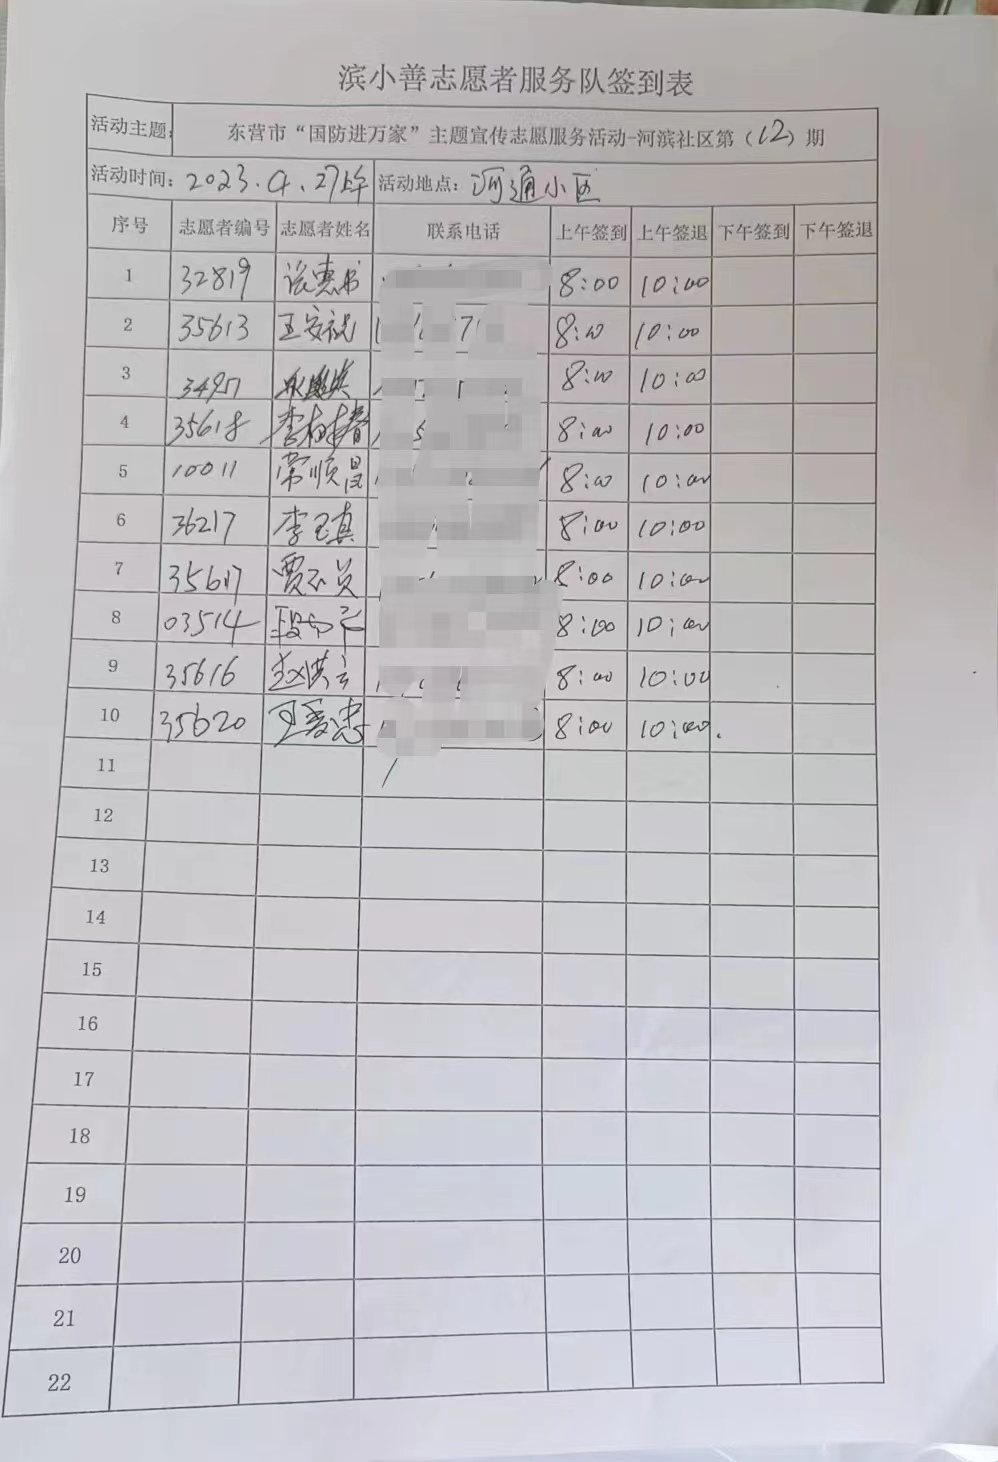 滨小善志愿者服务队签到表
活动主题: 东营市“国防进万家”主题宣传志愿服务活动-河滨社区第（12）期
活动时间: 2023.4.27上午 活动地点: 河通小区
序号 志愿者编号 志愿者姓名 联系电话 上午签到 上午签退 下午签到 下午签退
1 32819 惠 8:00 10:00
2 35613 王安祝 8:00 10:00
3 8:00 10:00
4 35618 李树春 8:00 10:00
5 10011 常顺昌 8:00 10:00
6 36217 李玉真 8:00 10:00
7 35617 贾 8:00 10:00
8 03514 段 8:00 10:00
9 35616 赵洪 8:00 10:00
10 35620 王爱忠 8:00 10:00.
11
12
13
14
15
16
17
18
19
20
21
22